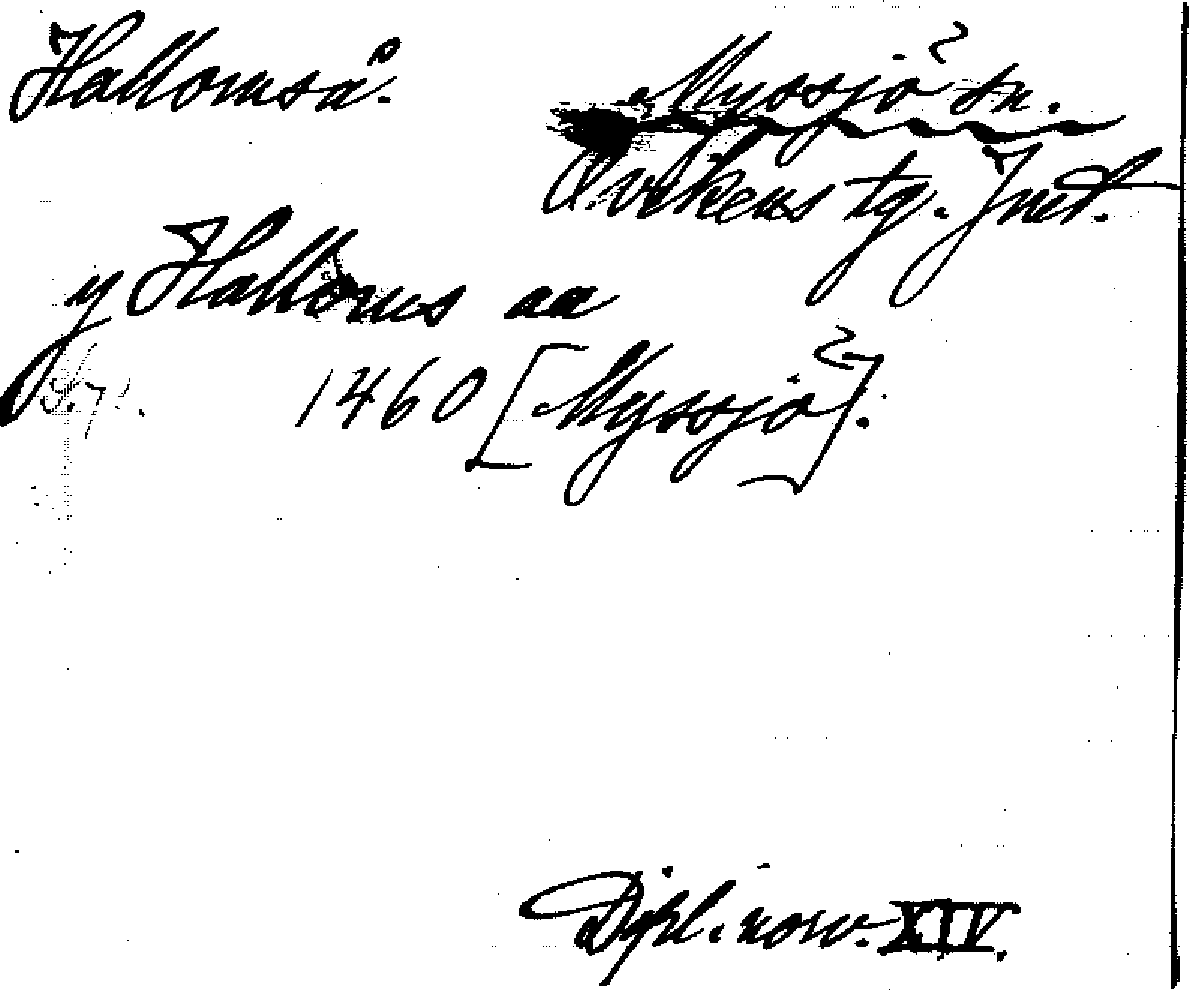 Hallomså. Myssjö sn.
Ovikens tg. Jmtl.
y Halloms aa
1460 [Myssjö].
Dipl. norv. XIV.